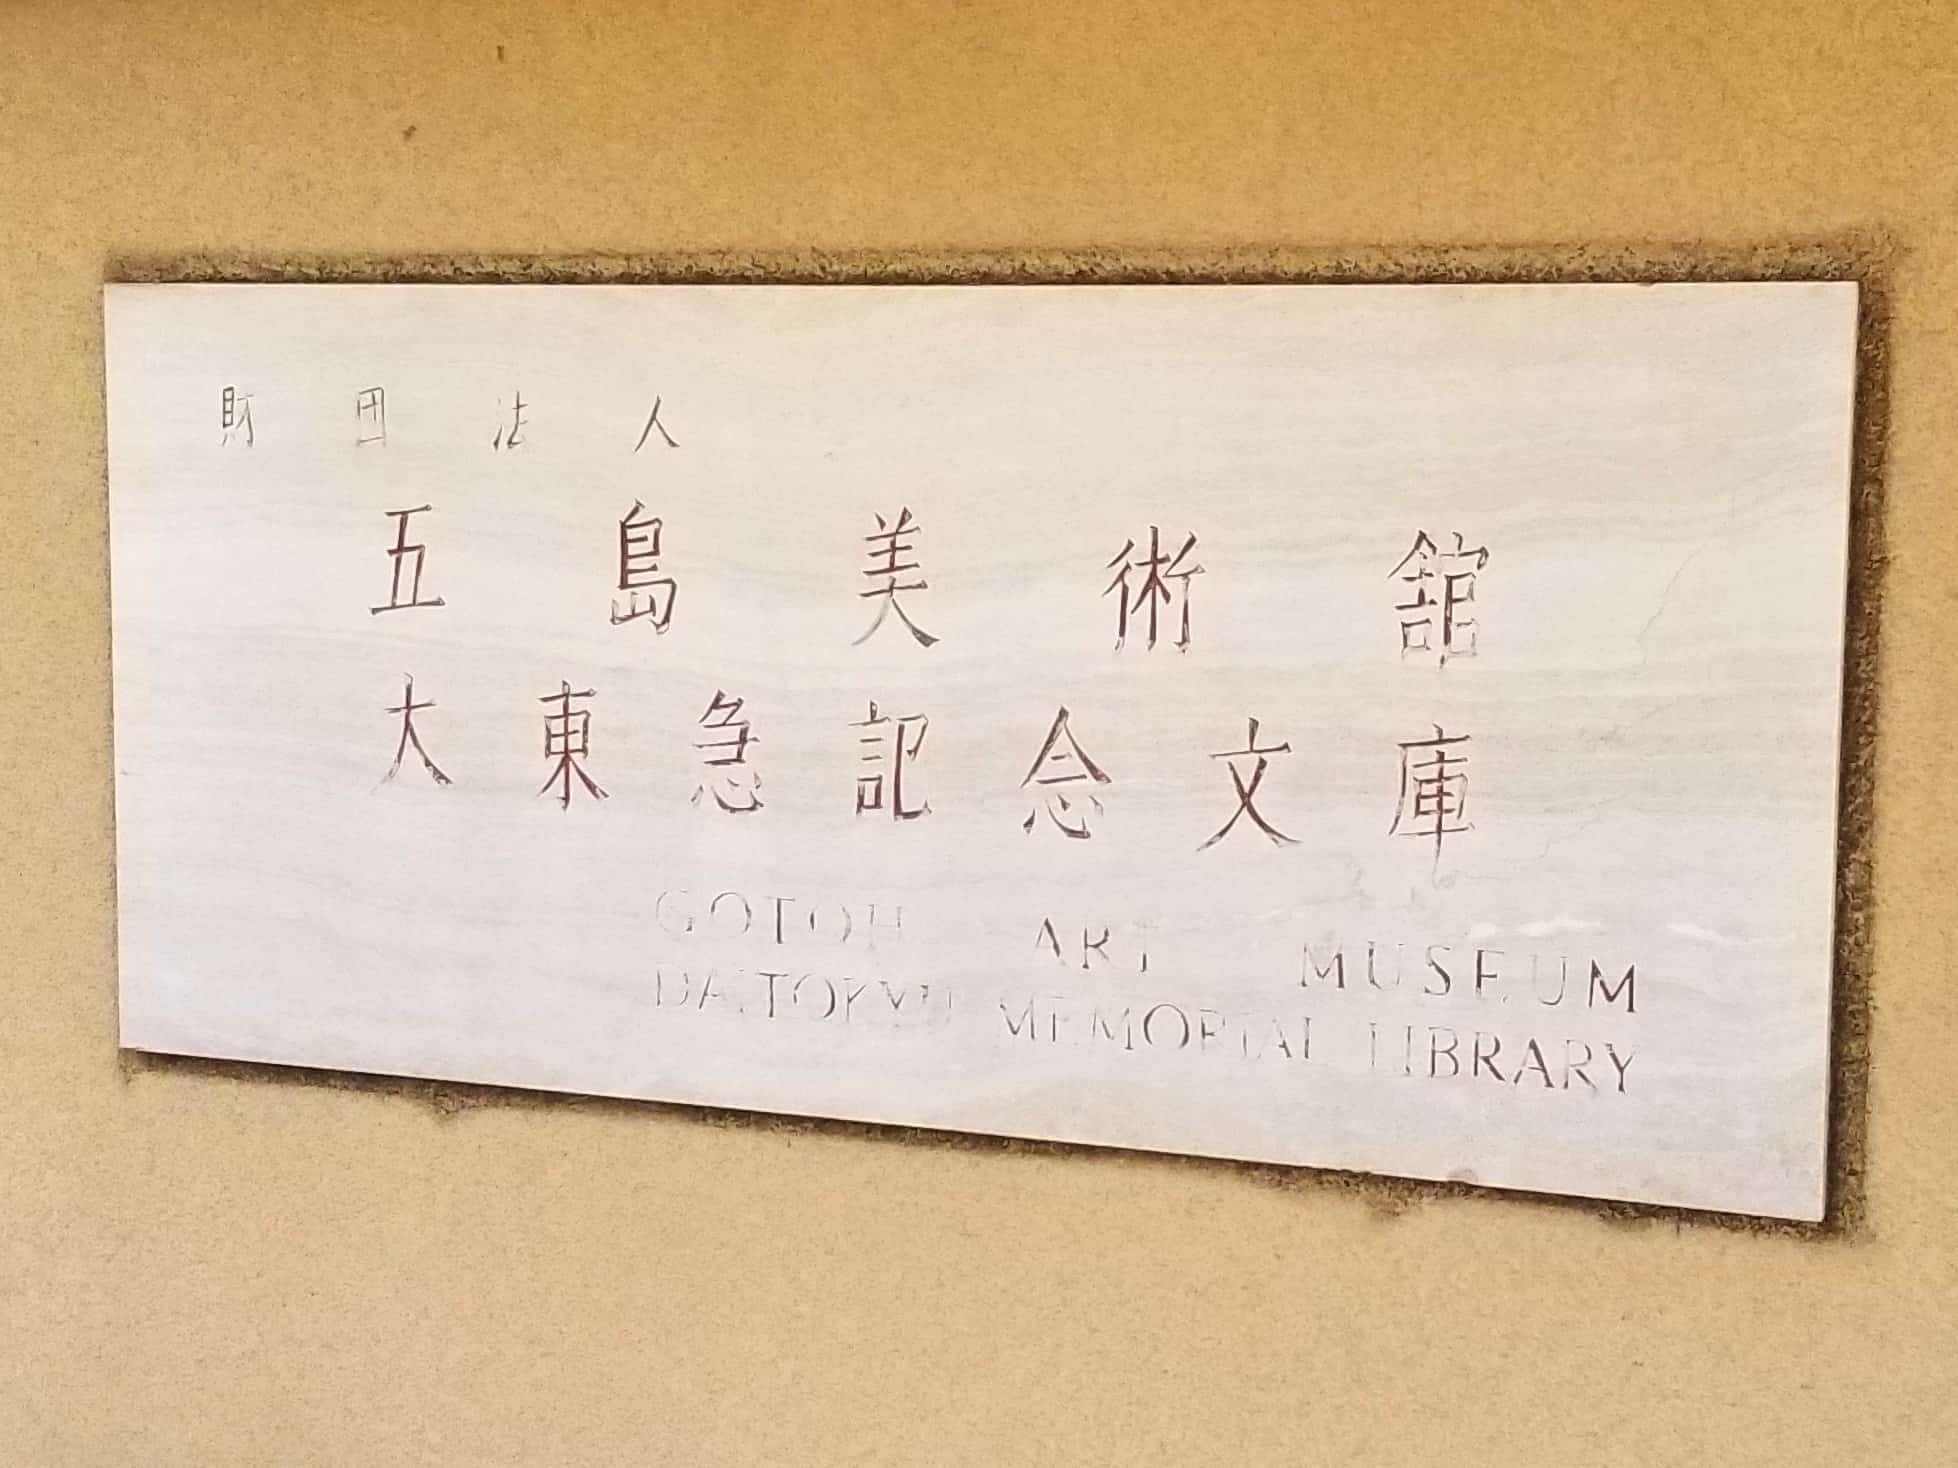 財団法人
五島美術館
大東急記念文庫
GOTOH ART MUSEUM
DAITOKYU MEMORIAL LIBRARY